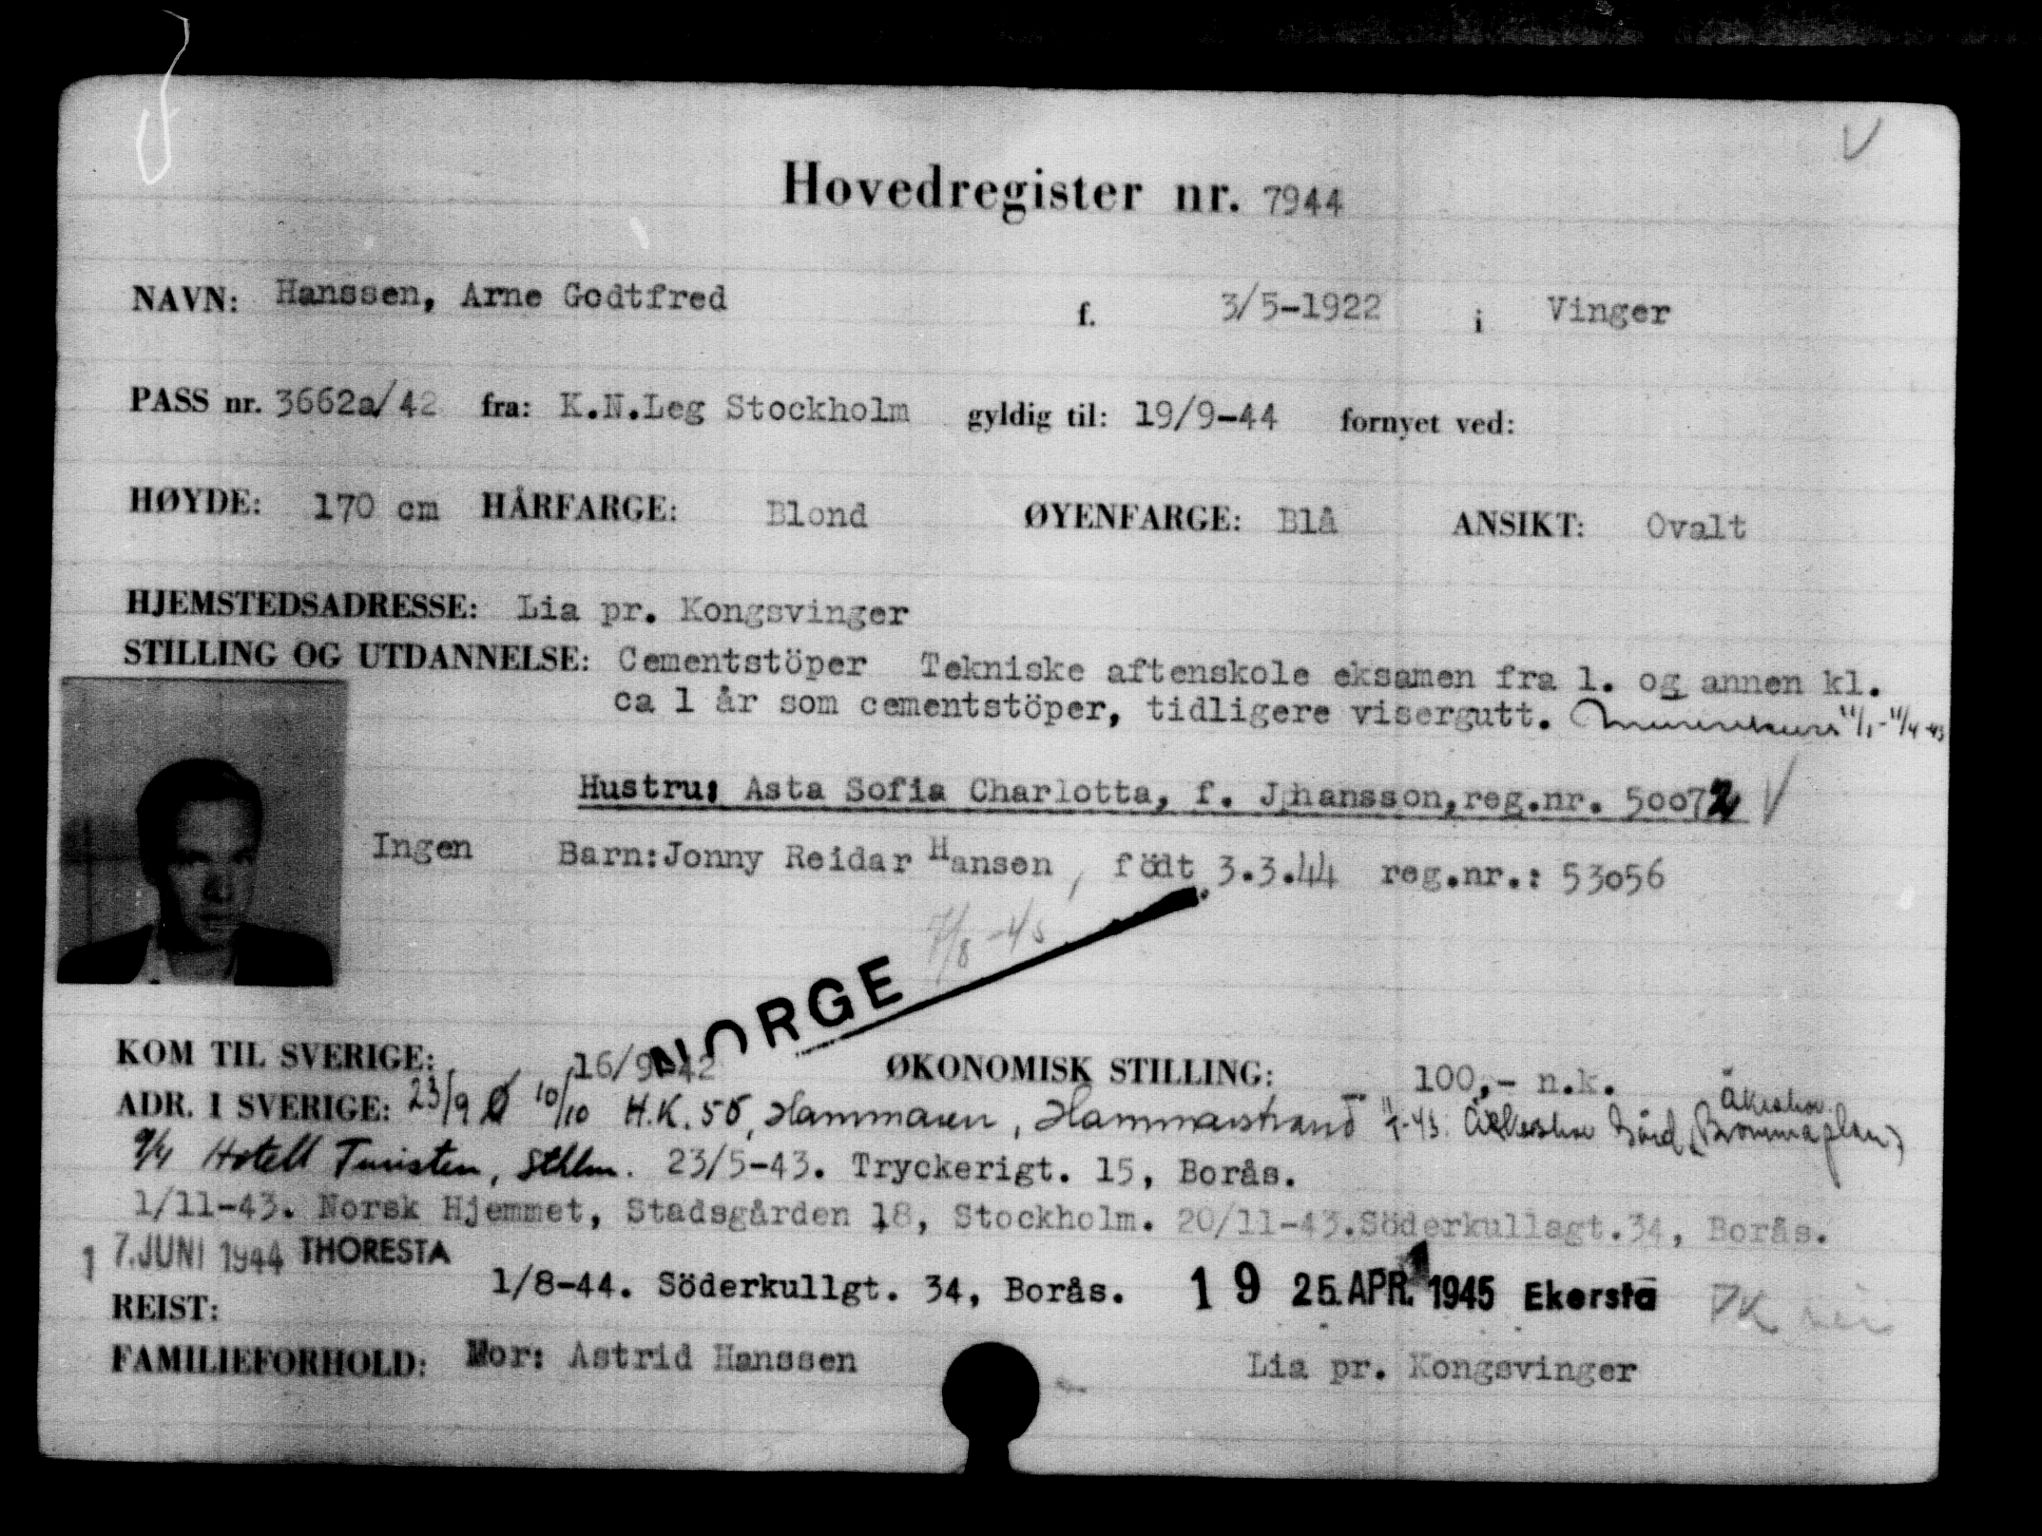 Hovedregister nr. 7944
NAVN: Hanssen, Arne Godtfred f. 3/5-1922 i Vinger
PASS nr. 3662a/42 fra: K.N.Leg Stockholm gyldig til: 19/9-44 fornyet ved:
HØYDE: 170 cm HÅRFARGE: Blond ØYENFARGE: Blå ANSIKT: Ovalt
HJEMSTEDSADRESSE: Lia pr. Kongsvinger
STILLING OG UTDANNELSE: Cementstöper Tekniske aftenskole eksamen fra 1. og annen kl.
ca 1 år som cementstöper, tidligere visergutt. 11/1-11/4-43
Hustru: Asta Sofia Charlotta, f. Johansson, reg.nr. 50072 V
Ingen Barn: Jonny Reidar Hansen, födt 3.3.44 reg.nr.: 53056
7/8-45
NORGE
KOM TIL SVERIGE: 16/9-42 ØKONOMISK STILLING: 100,- n.k.
Åkeshov
ADR. I SVERIGE: 23/9 Ø 10/10 H.K. 50, Hammaren, Hammarstrand Åkeshov Gård (Brommaplan)
9/4 Hotell Turisten, Sthlm. 23/5-43. Tryckerigt. 15, Borås.
1/11-43. Norsk Hjemmet, Stadsgården 18, Stockholm. 20/11-43. Söderkullagt. 34, Borås.
17. JUNI 1944 THORESTA
1/8-44. Söderkullgt. 34, Borås. 19 25. APR. 1945 Ekersta
REIST:
FAMILIEFORHOLD: Mor: Astrid Hanssen Lia pr. Kongsvinger